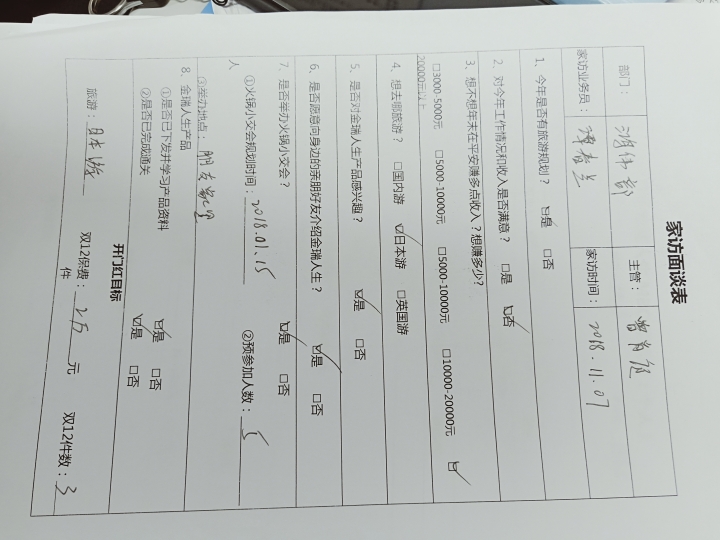 家访面谈表
部门： 主管：
家访业务员： 家访时间： 2018.11.07
1、今年是否有旅游规划？ ☑是 □否
2、对今年工作情况和收入是否满意？ □是 ☑否
3、想不想年末在平安赚多点收入？想赚多少？
□3000-5000元 □5000-10000元 □5000-10000元 □10000-20000元 ☑
20000元以上
4、想去哪旅游？ □国内游 ☑日本游 □英国游
5、是否对金瑞人生产品感兴趣？ ☑是 □否
6、是否愿意向身边的亲朋好友介绍金瑞人生？ ☑是 □否
7、是否举办火锅小交会？ ☑是 □否
①火锅小交会规划时间：2018.01.15 ②预参加人数：5
人
③举办地点：朋友家里
8、金瑞人生产品
①是否已下发并学习产品资料 ☑是 □否
②是否已完成通关 ☑是 □否
开门红目标
旅游：日本游 双12保费：2万元 双12件数：3
件